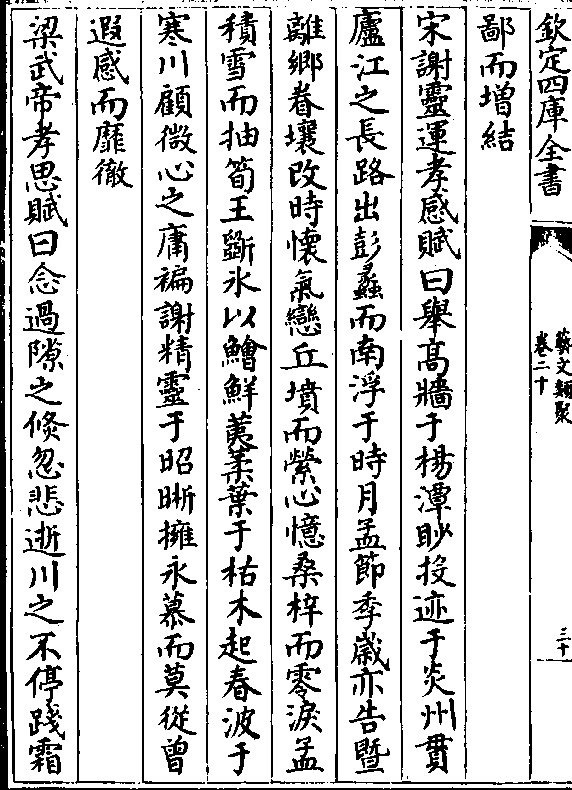 欽定四庫全書
藝文類聚
卷二十
三十
鄙而增結
宋謝靈運孝感賦曰舉高牆于楊潭眇投迹于炎州貫
廬江之長路出彭蠡而南浮于時月孟節季歲亦告暨
離鄉眷壤改時懷氣戀丘墳而縈心憶桑梓而零淚孟
積雪而抽筍王斵氷以鱠鮮荑葉于枯木起春波于
寒川顧微心之庸褊謝精靈于昭晰擁永慕而莫從曾
遐感而靡徹
梁武帝孝思賦曰念過隙之倐忽悲逝川之不停踐霜